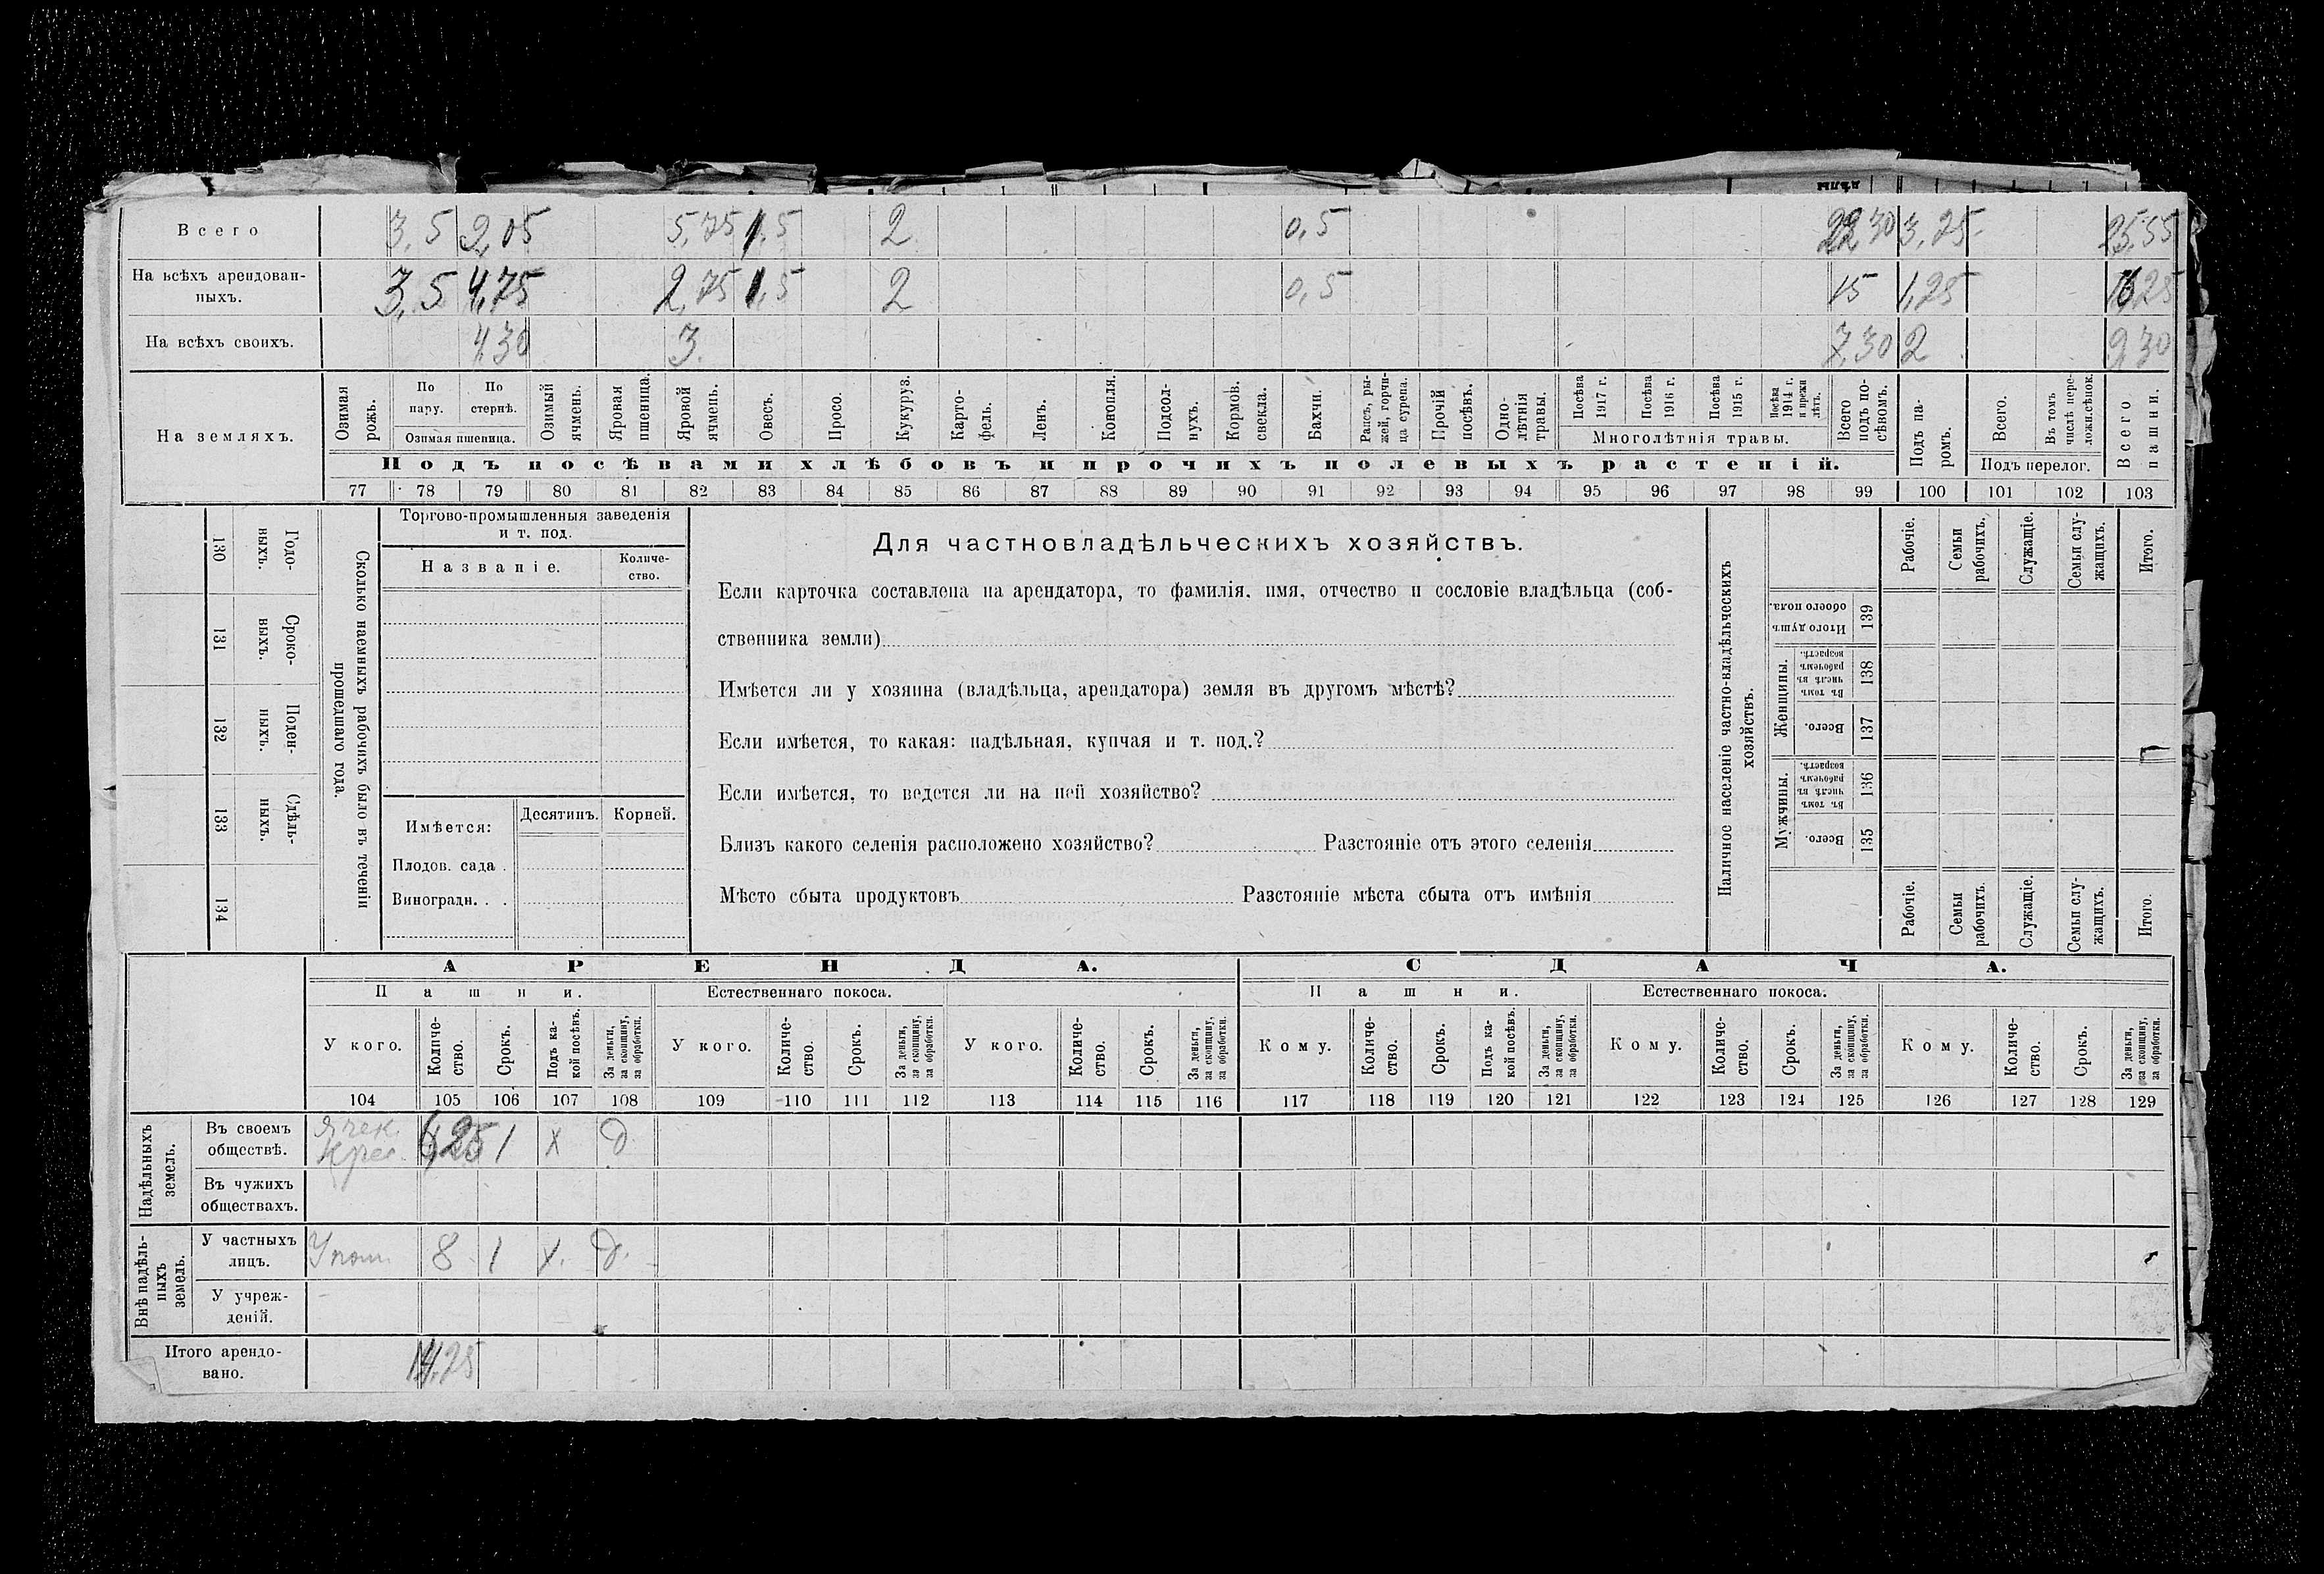 Всего 3,5 9,05 5,75 1,5 2 0,5 22,30 3,25 25,55
На всѣхъ арендован-
ныхъ. 3,5 4,75 2,75 1,5 2 0,5 15 1,25 16,25
На всѣхъ своихъ. 4,30 3 7,30 2 9,30
На земляхъ.
Озимая рожь.
По пару.
По стернѣ.
Озимая пшеница.
Озимый ячмень.
Яровая пшеница.
Яровой ячмень.
Овесъ.
Просо.
Кукуруз.
Карто-
фель.
Ленъ.
Конопля.
Подсол-
нухъ.
Кормов.
свекла.
Бахчи.
Рапсъ, ры-
жей, горчи-
ца сурепа.
Прочій посѣвъ.
Одно-
лѣтнія
травы.
Посѣва 1917 г.
Посѣва 1916 г.
Посѣва 1915 г.
Посѣва 1914 г. и прежн лѣтъ.
Многолѣтнія травы.
Всего подъ по-
сѣвомъ.
Подъ посѣвами хлѣбовъ и прочихъ полевыхъ растеній.
Подъ па-
ромъ.
Всего.
Въ томъ числѣ пере-
ложн.сѣнок.
Подъ перелог.
Всего пашни.
77 78 79 80 81 82 83 84 85 86 87 88 89 90 91 92 93 94 95 96 97 98 99 100 101 102 103
130 Годо-
ныхъ.
131 Сроко-
ныхъ.
132 Поден-
ныхъ.
133 Сдѣль-
ныхъ.
134
Сколько наемныхъ рабочихъ было въ теченіи
прошедшаго года.
Торгово-промышленныя заведенія
и т. под.
Названіе.
Количе-
ство.
Имѣется:
Десятинъ. Корней.
Плодов. сада .
Виноградн. . .
Для частновладѣльческихъ хозяйствъ.
Если карточка составлена на арендатора, то фамилія, имя, отчество и сословіе владѣльца (соб-
ственника земли)
Имѣется ли у хозяина (владѣльца, арендатора) земля въ другомъ мѣстѣ?
Если имѣется, то какая: надѣльная, купчая и т. под.?
Если имѣется, то ведется ли на ней хозяйство?
Близъ какого селенія расположено хозяйство? Разстояніе отъ этого селенія
Мѣсто сбыта продуктовъ Разстояніе мѣста сбыта отъ имѣнія
Наличное населеніе частно-владѣльческихъ
хозяйствъ.
Рабочіе.
Семьи рабочихъ.
Служащіе.
Семьи слу-
жащихъ.
Итого.
Итого душъ обоего пола. 139
Женщины.
Въ томъ числѣ въ рабочемъ возрастѣ. 138
Всего. 137
Мужчины.
Въ томъ числѣ въ рабочемъ возрастѣ. 136
Всего. 135
Рабочіе.
Семьи рабочихъ.
Служащіе.
Семьи слу-
жащихъ.
Итого.
АРЕНДА. СДАЧА.
Пашни. Естественнаго покоса. Пашни. Естественнаго покоса.
У кого. Количе-
ство. Срокъ. Подъ ка-
кой посѣвъ. За деньги, за скопщину, за обработки.
У кого. Количе-
ство. Срокъ. За деньги, за скопщину, за обработки.
У кого. Количе-
ство. Срокъ. За деньги, за скопщину, за обработки.
Кому. Количе-
ство. Срокъ. Подъ ка-
кой посѣвъ. За деньги, за скопщину, за обработки.
Кому. Количе-
ство. Срокъ. За деньги, за скопщину, за обработки.
Кому. Количе-
ство. Срокъ. За деньги, за скопщину, за обработки.
104 105 106 107 108 109 110 111 112 113 114 115 116 117 118 119 120 121 122 123 124 125 126 127 128 129
Надѣльныхъ
земель.
Въ своемъ
обществѣ. 6,25 1 х д
Въ чужихъ
обществахъ.
Внѣ надѣль-
ныхъ
земель.
У частныхъ
лицъ. У пом. 8 1 х. д.
У учреж-
деній.
Итого арендо-
вано. 14,25